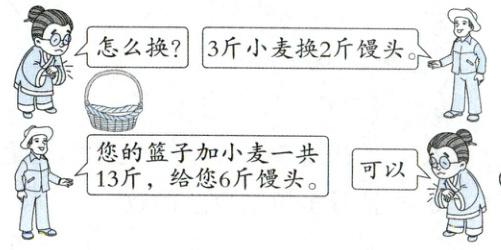 怎么换？
3斤小麦换2斤馒头。
您的篮子加小麦一共
13斤，给您6斤馒头。
可以